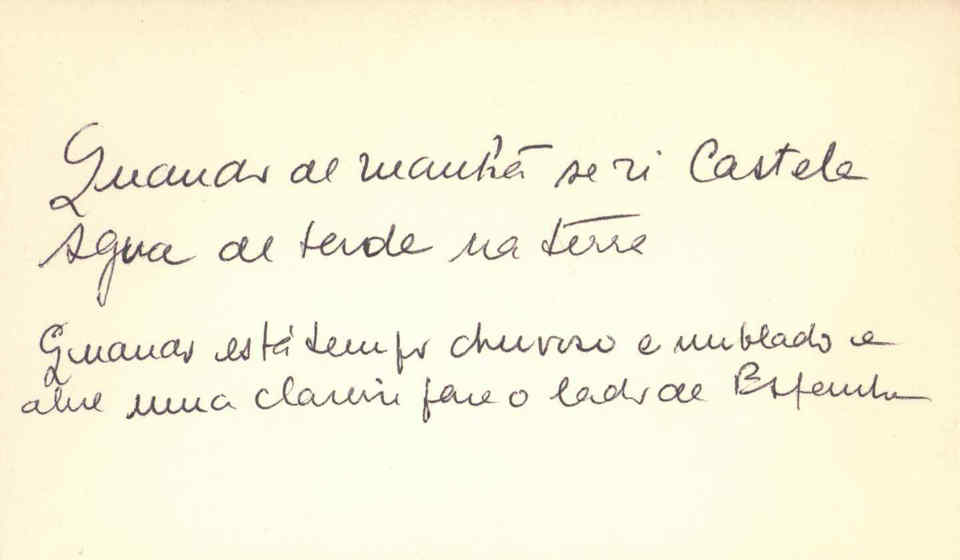 Quando de manhã se ri Castela
Agua de tarde na terra
Quando está tempo chuvoso e nublado e
abre uma clareira para o lado de Espanha